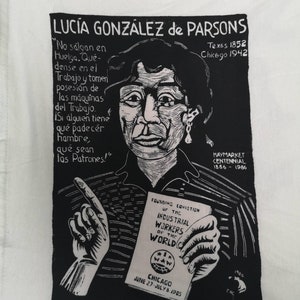 LUCÍA GONZÁLEZ de PARSONS
Texas 1852
Chicago 1942
"No salgan en
Huelga. Qué-
dense en el
Trabajo y tomen
posesión de
las máquinas
del Trabajo.
¡Si alguien tiene
qué padecer
hambre,
qué sean
las Patrones!"
HAYMARKET
CENTENNIAL
1886 - 1986
FOUNDING CONVENTION
OF THE
INDUSTRIAL
WORKERS
OF THE
WORLD
IWW
CHICAGO
JUNE 27-JULY 8, 1905